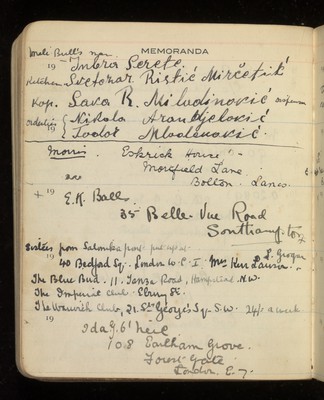 MEMORANDA
Mrs Bull's man
19 Intero Serete
Kitchen Svetozar Ristić Mirčetić
Kap. Sava R. Miladinović
Orderlies { Nikola Arandjelović
{ Todor Mladenović
Morris. Eskrick House
Morefield Lane
Bolton. Lancs
+ 19 E.K. Balls
35 Belle-Vue Road
Southampton
Sisters from Salonika
40 Bedford Sq. London W.C. I. Mrs Ken Lawson
L. Grogan
The Blue Bird. 11. Tanza Road, Hampstead. N.W.
The Imperial Club Ebury St.
The Warwich Club, 21. St. George's Sq. S.W. 24/- a week
19 Ida G. O'Neil
108 Earlham Grove.
Forest Gate
London. E. 7.